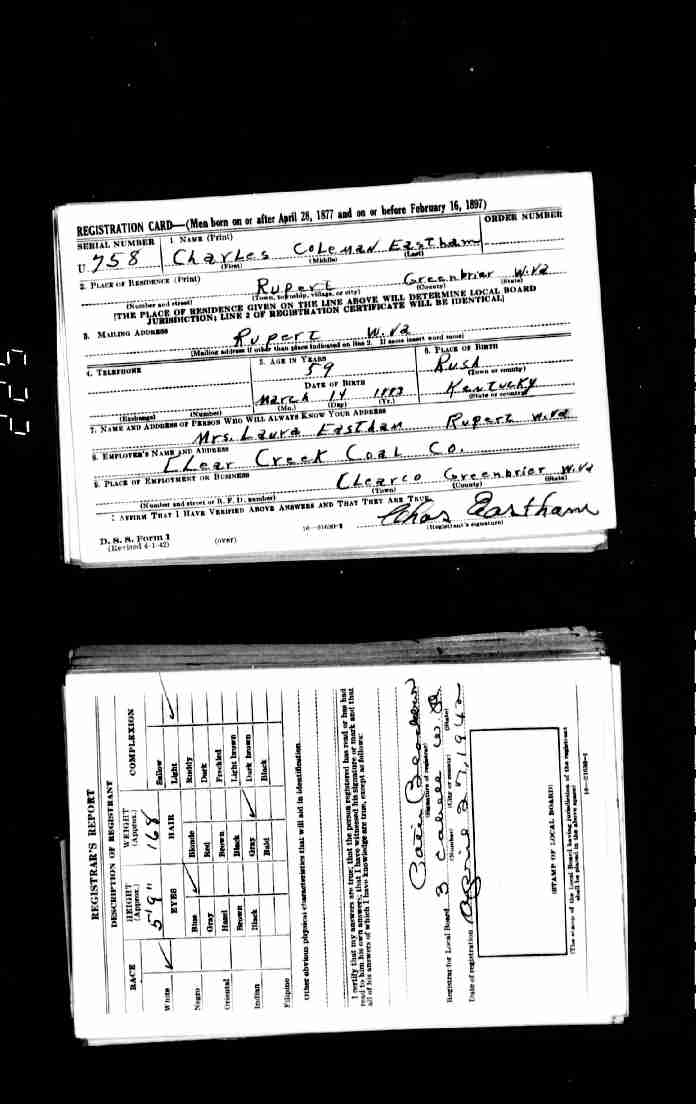 REGISTRATION CARD—(Men born on or after April 28, 1877 and on or before February 16, 1897)
SERIAL NUMBER 1. NAME (Print) ORDER NUMBER
U 758 Charles Coleman Eastham
(First) (Middle) (Last)
2. PLACE OF RESIDENCE (Print)
Rupert Greenbrier W.Va
(Number and street) (Town, township, village, or city) (County) (State)
[THE PLACE OF RESIDENCE GIVEN ON THE LINE ABOVE WILL DETERMINE LOCAL BOARD
JURISDICTION; LINE 2 OF REGISTRATION CERTIFICATE WILL BE IDENTICAL]
3. MAILING ADDRESS
Rupert W.Va
[Mailing address if other than place indicated on line 2. If same insert word same]
4. TELEPHONE 5. AGE IN YEARS 6. PLACE OF BIRTH
59 Rush
(Town or county)
DATE OF BIRTH
March 14 1883 Kentucky
(Exchange) (Number) (Mo.) (Day) (Yr.) (State or country)
7. NAME AND ADDRESS OF PERSON WHO WILL ALWAYS KNOW YOUR ADDRESS
Mrs. Laura Eastham Rupert W.Va
8. EMPLOYER'S NAME AND ADDRESS
Clear Creek Coal Co.
9. PLACE OF EMPLOYMENT OR BUSINESS
Clearco Greenbrier W.Va
(Number and street or R. F. D. number) (Town) (County) (State)
I AFFIRM THAT I HAVE VERIFIED ABOVE ANSWERS AND THAT THEY ARE TRUE.
Chas Eastham
D. S. S. Form 1 16—21630-2 (Registrant's signature)
(Revised 4-1-42) (over)
REGISTRAR'S REPORT
DESCRIPTION OF REGISTRANT
RACE HEIGHT (Approx.) WEIGHT (Approx.) COMPLEXION
White ✓ 5'9" 168 Sallow
EYES HAIR Light ✓
Negro Blue ✓ Blonde Ruddy
Gray Red Dark
Oriental Hazel Brown Freckled
Brown Black Light brown
Indian Black Gray ✓ Dark brown
Bald Black
Filipino
Other obvious physical characteristics that will aid in identification
I certify that my answers are true; that the person registered has read or has had
read to him his own answers; that I have witnessed his signature or mark and that
all of his answers of which I have knowledge are true, except as follows:
(Signature of registrar)
Registrar for Local Board 3 Cabell W. Va.
(Number) (City or county) (State)
Date of registration April 27, 1942
(STAMP OF LOCAL BOARD)
(The stamp of the Local Board having jurisdiction of the registrant
shall be placed in the above space)
16—21630-2